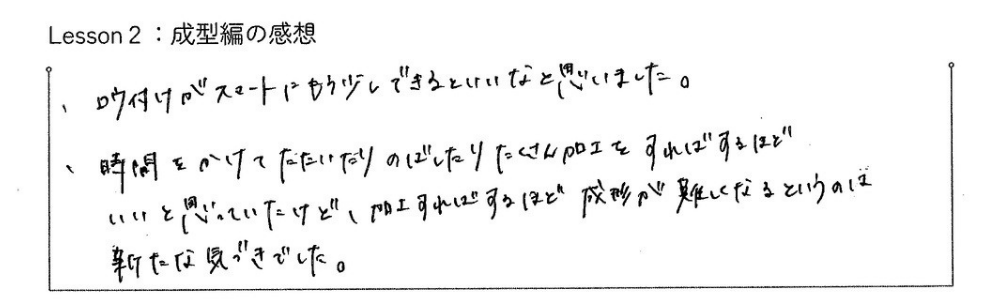 Lesson 2：成型編の感想
、ロウ付けがスマートにもう少しできるといいなと思いました。
、時間をかけてたたいたりのばしたりたくさん加工をすればするほど
いいと思っていたけど、加工すればするほど成形が難しくなるというのは
新たな気づきでした。